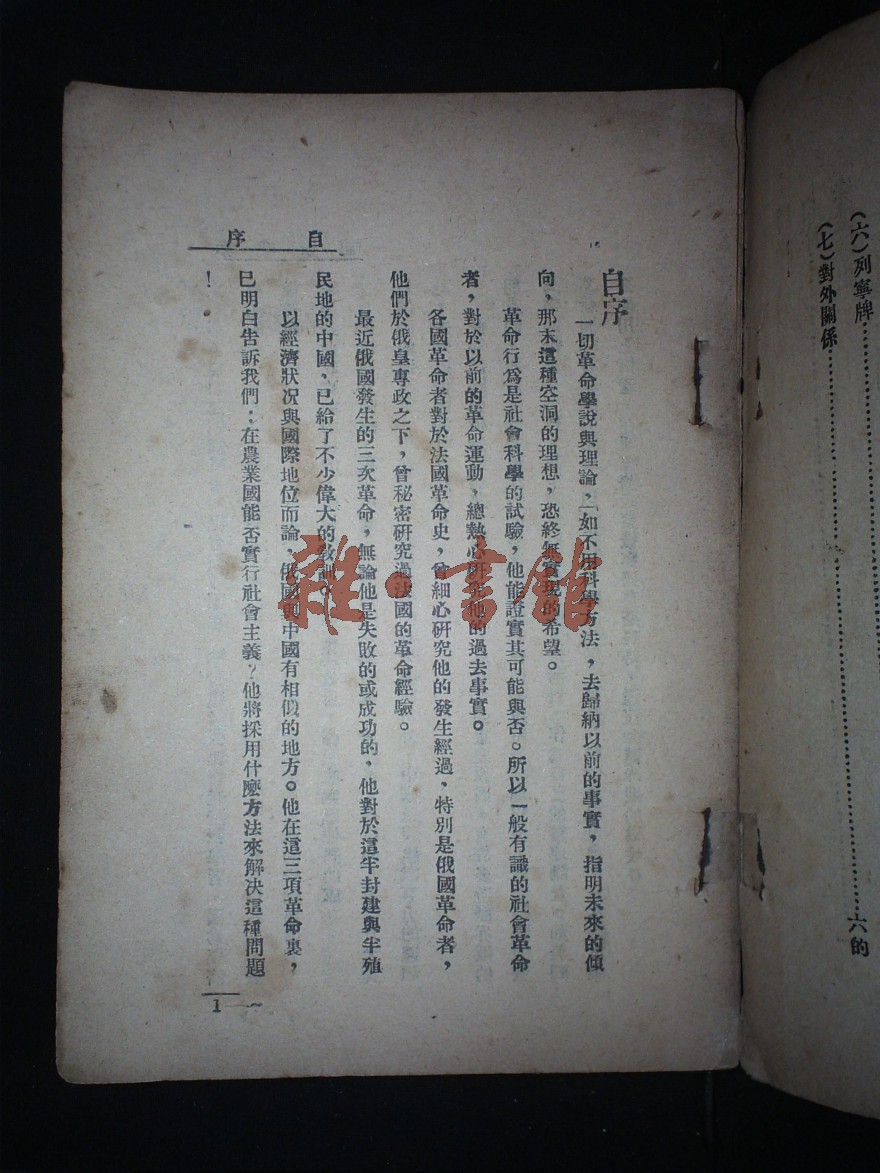 (六)列寧牌……………………六的
(七)對外關係……………………
自序
自序
一切革命學說與理論,如不用科學方法,去歸納以前的事實,指明未來的傾
向,那末這種空洞的理想,恐終無實現的希望。
革命行為是社會科學的試驗,他能證實其可能與否。所以一般有識的社會革命
者,對於以前的革命運動,總熱心研究他的過去事實。
各國革命者對於法國革命史,曾細心研究他的發生經過,特別是俄國革命者,
他們於俄皇專政之下,曾秘密研究過法國的革命經驗。
最近俄國發生的三次革命,無論他是失敗的或成功的,他對於這半封建與半殖
民地的中國,已給了不少偉大的教訓。
以經濟狀况與國際地位而論,俄國與中國有相似的地方。他在這三項革命裏,
已明白告訴我們:在農業國能否實行社會主義?他將採用什麽方法來解决這種問題
!
1
雜·書館